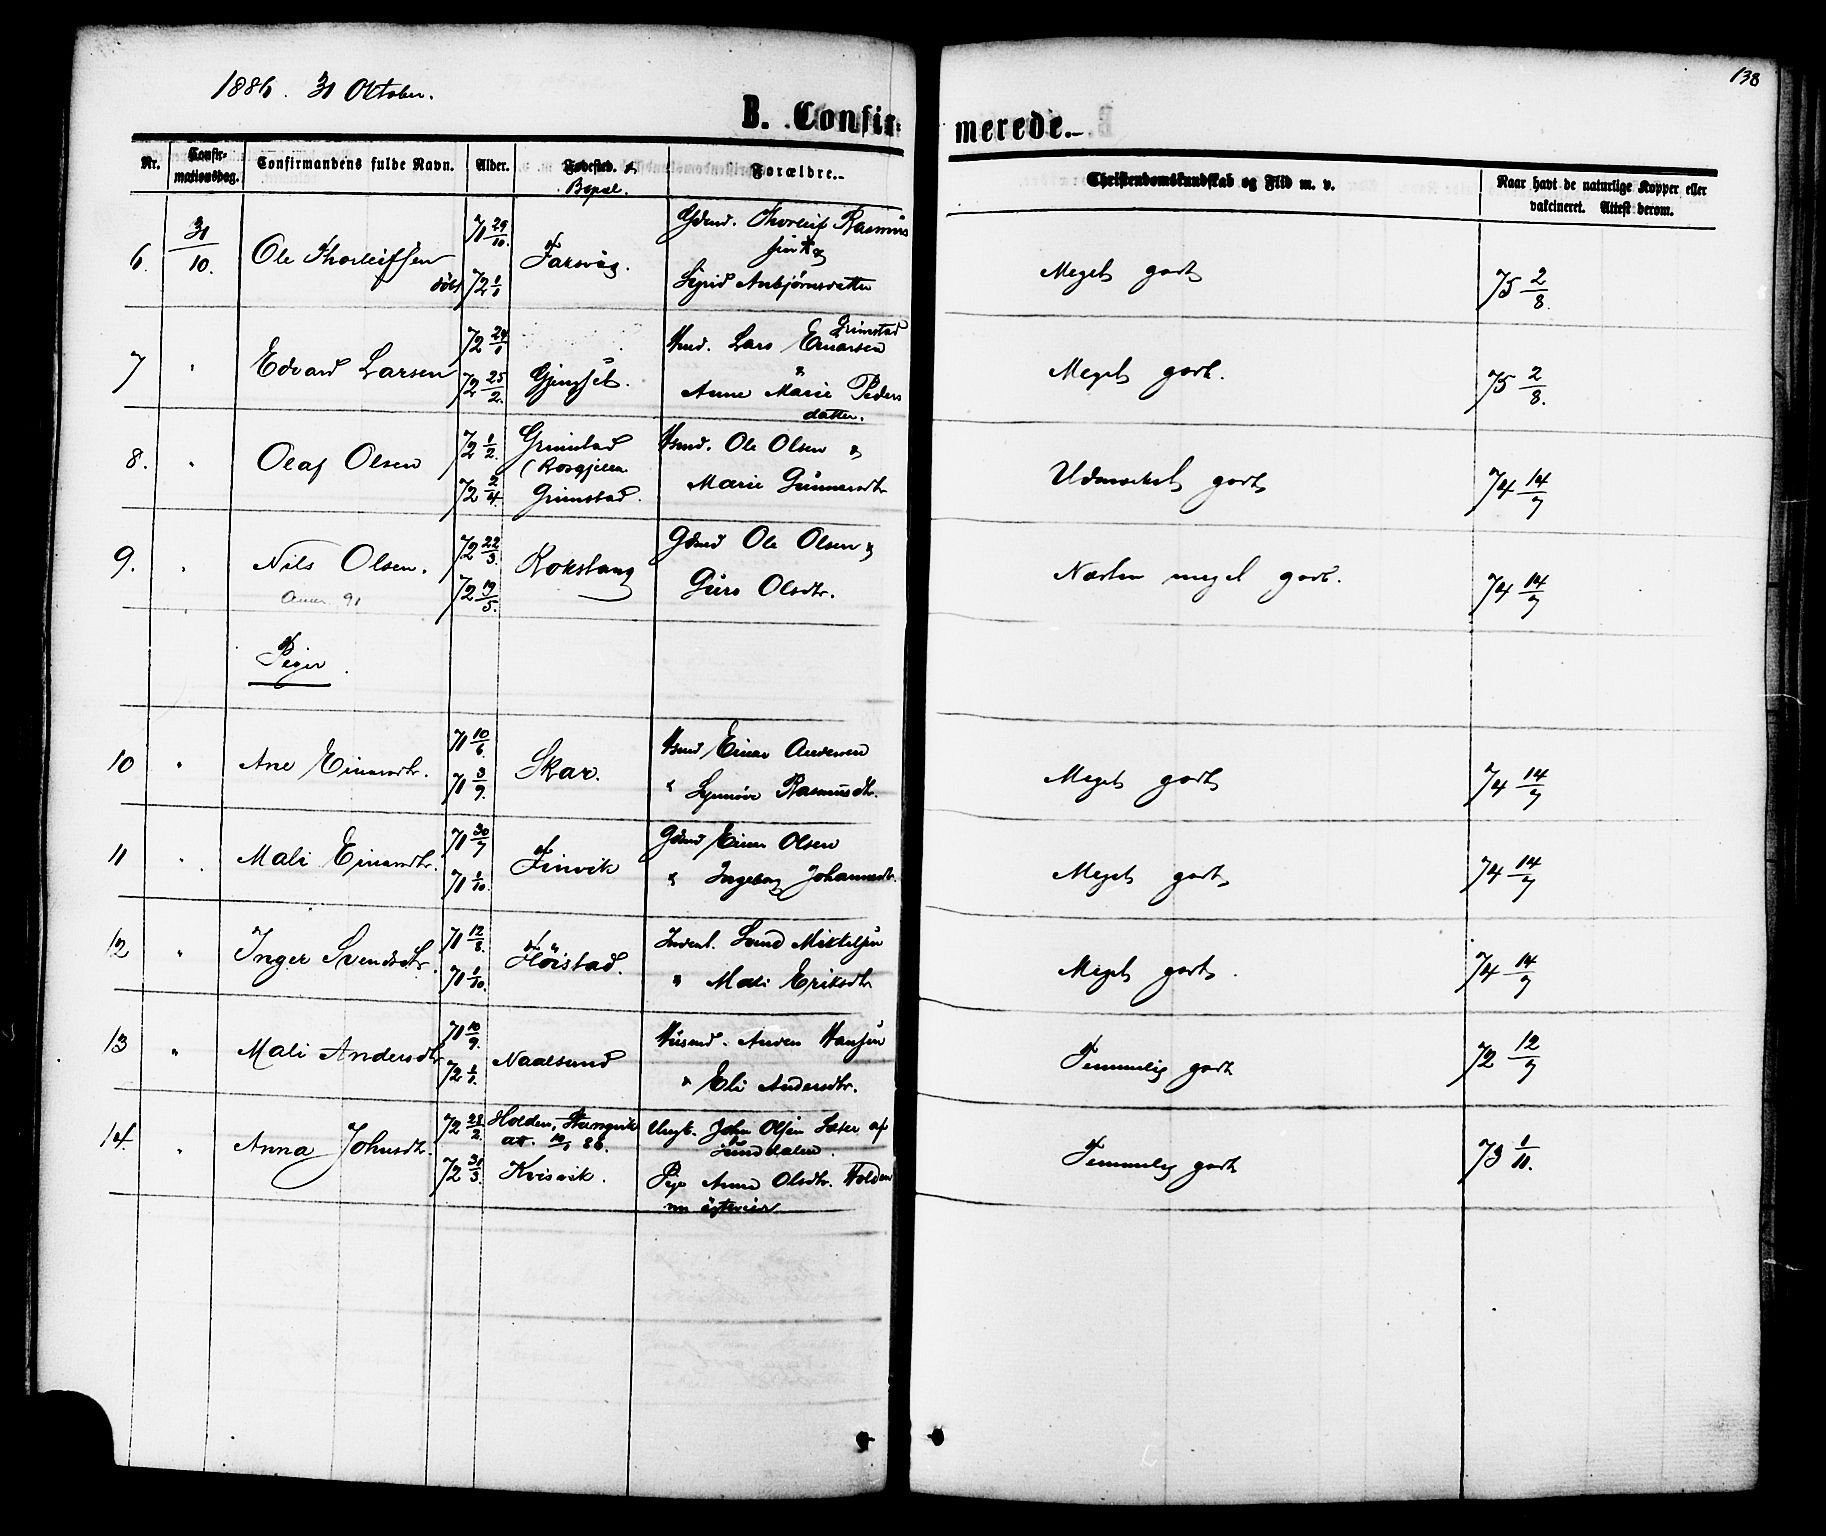 1886. 31 Oktober.
138
B. Confirmerede.
Nr. Confirmationsdag. Confirmandens fulde Navn. Alder. Fødested. & Bopæl. Forældre. Christendomskundskab og Flid m. v. Naar havt de naturlige Kopper eller vakcineret. Attest derom.
6. 31/10. Ole Thorleifsen 71 29/10. Farsvig. Gdmd. Thorleif Rasmussen & Meget godt 75 2/8.
døbt 72 1/1 Sigrid Asbjørnsdatter
7 " Edvard Larsen 72 24/1 Gjengset. Hmd. Lars Einarsen Grimstad & Meget godt. 75 2/8.
72 25/2. Anne Marie Pedersdatter.
8. " Olaf Olsen 72 1/2. Grimstad Hsmd. Ole Olsen & Udmærket godt 74 14/7
72 2/4. Grimstad. Marie Gunnarsdtr
9. " Nils Olsen. 72 22/3. Rokstang Gdmd Ole Olsen & Næsten meget godt. 74 14/7
91 72 19/5. Guro Olsdtr.
Piger
10 " Ane Einarsdtr. 71 10/6. Skar. Hsmd Einar Andersen Meget godt 74 14/7
71 3/9. " Synnøve Rasmusdtr.
11 " Mali Einarsdtr. 71 30/7 Finvik Gdmd Einar Olsen Meget godt 74 14/7
71 1/10. " Ingeborg Johannesdtr.
12 " Inger Svendsdtr. 71 12/8. Høistad. Inderst. Svend Mikkelsen Meget godt. 74 14/7
71 1/10. " Mali Eriksdtr
13 " Mali Andersdtr 71 10/9. Naalsund Husmd. Anders Hansen Temmelig godt 72 12/7
72 1/1. " Eli Andersdtr.
14. " Anna Johnsdtr. 72 28/2. Holden, Stangvik Ungk. John Olsen Sæter af Sunddalen. Temmelig godt 73 1/11.
att. 86.
72 31/3. Kvisvik. Pige Anne Olsdtr. Holden
nu ægteviet